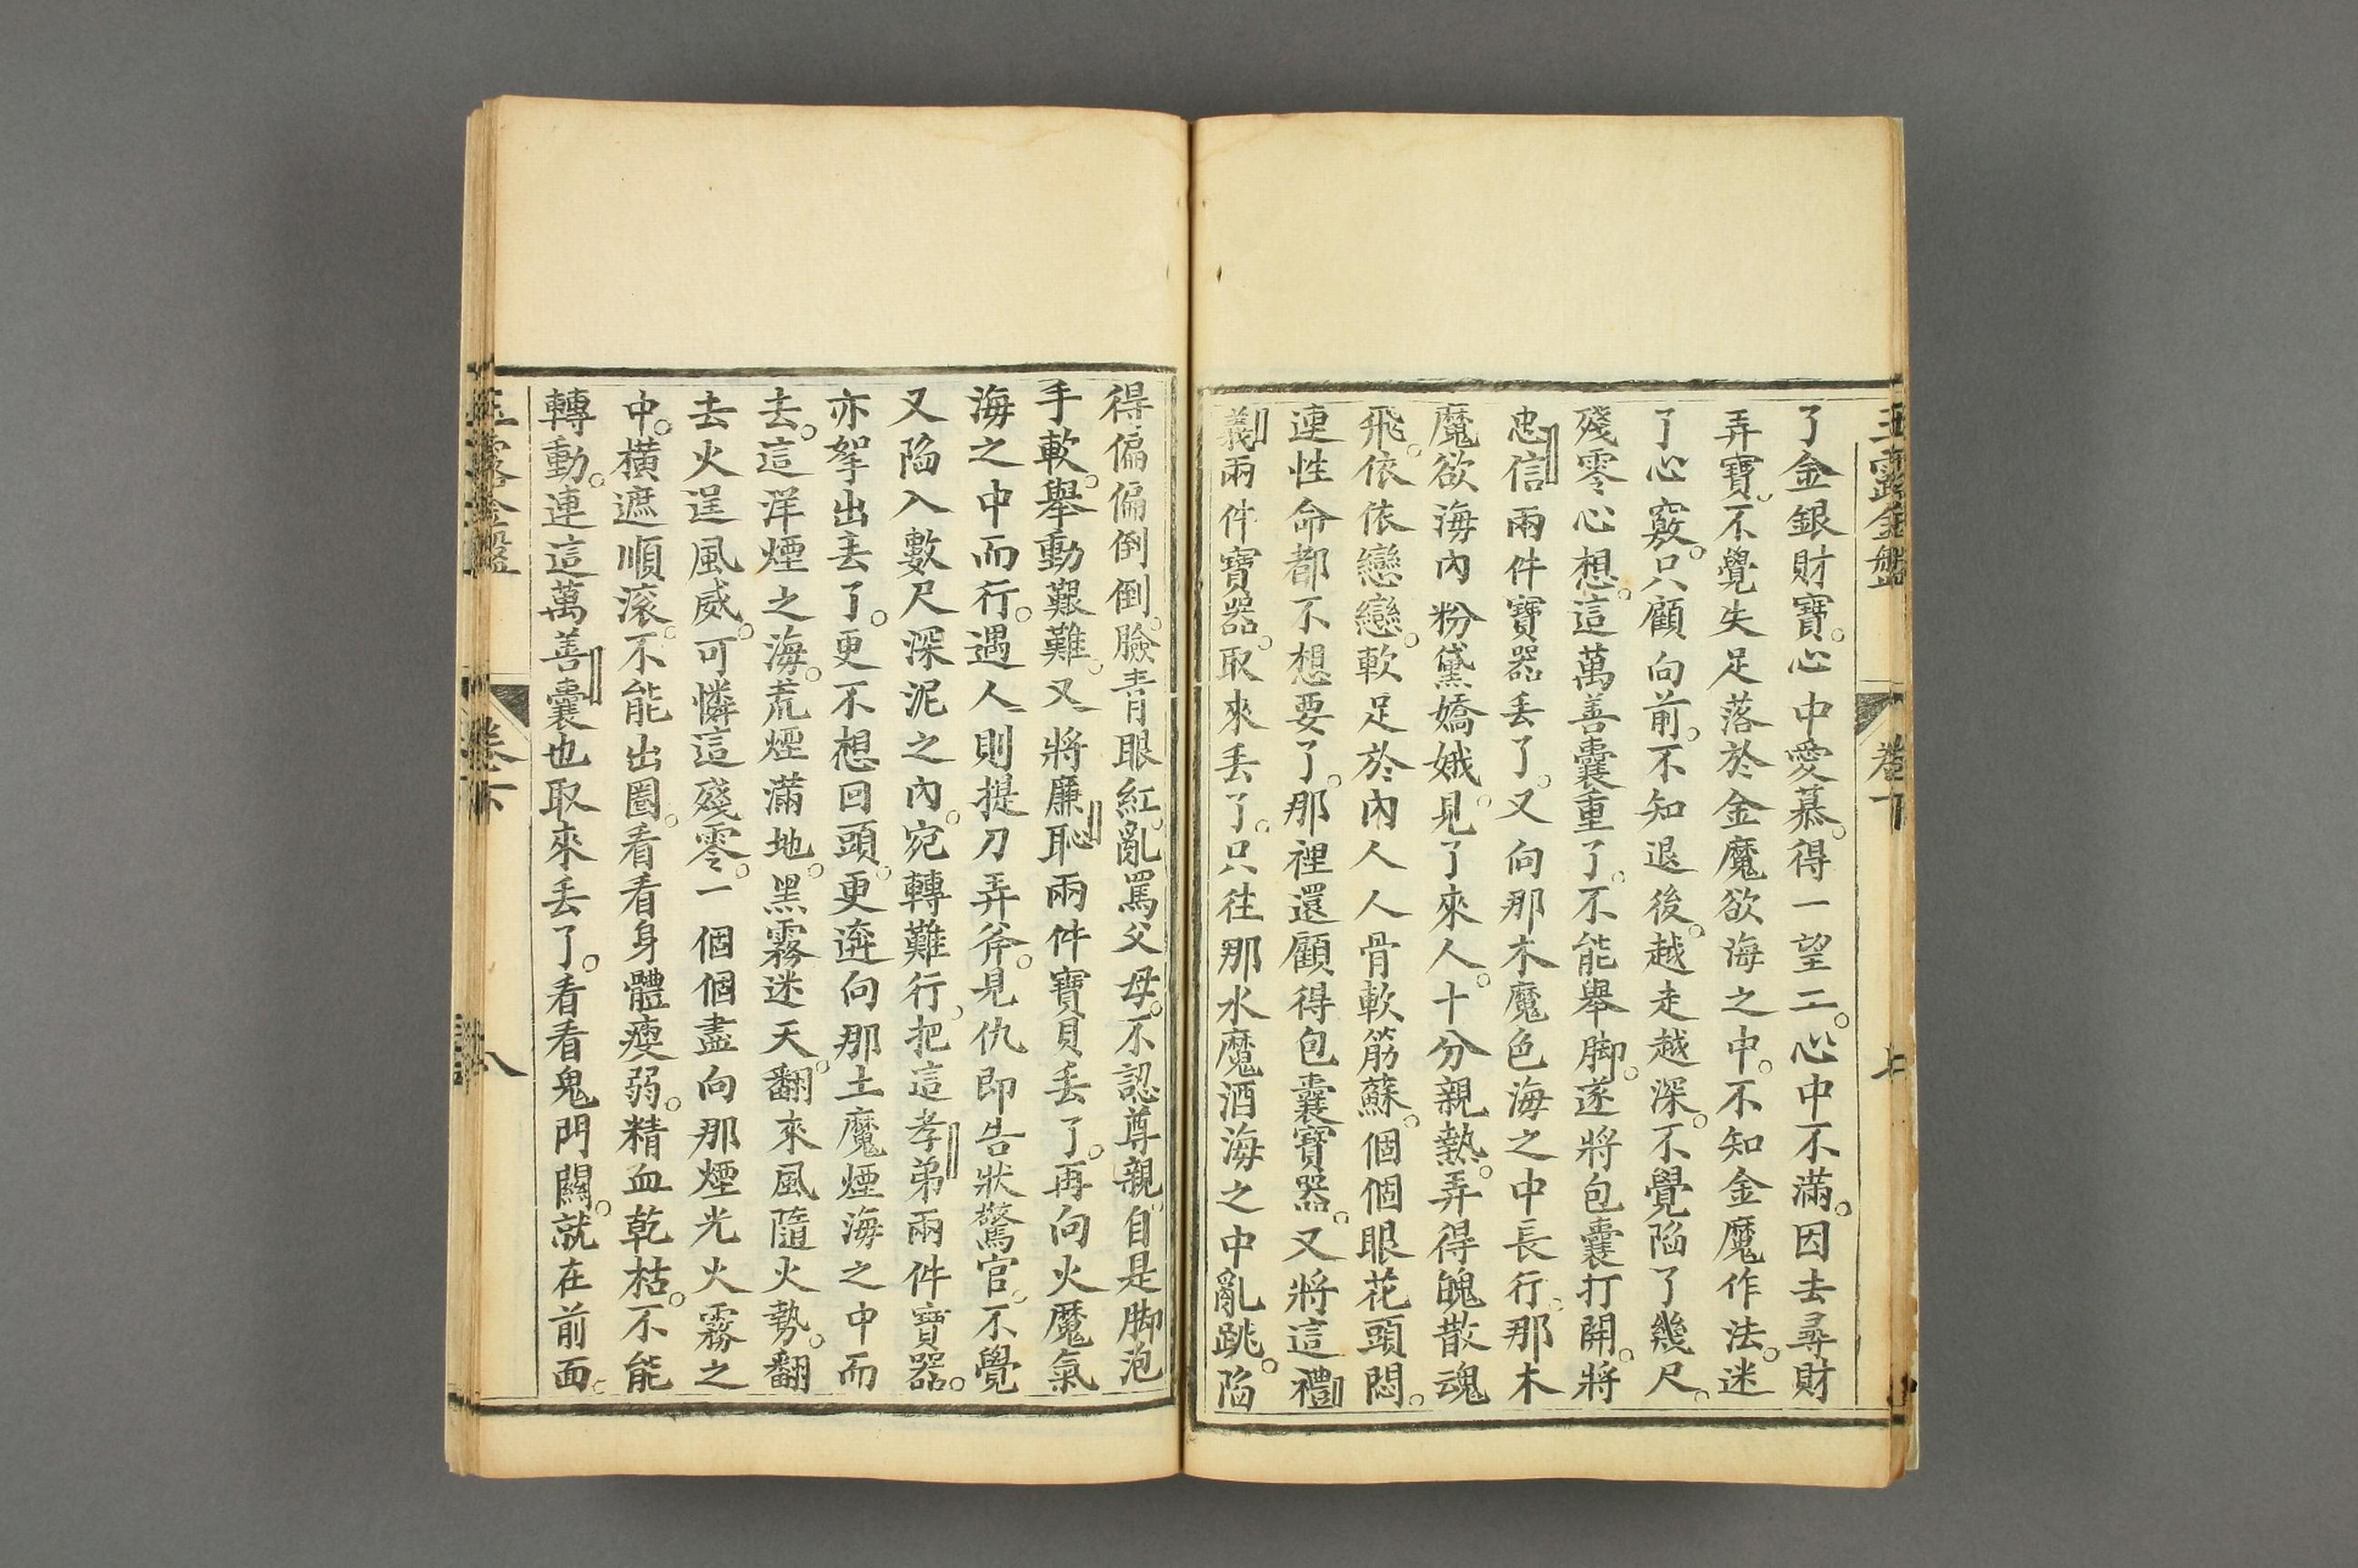 玉露金盤 卷下 七
了金銀財寶。心中愛慕。得一望二。心中不滿。因去尋財
弄寶。不覺失足落於金魔欲海之中。不知金魔作法。迷
了心竅。只顧向前。不知退後。越走越深。不覺陷了幾尺。
殘零心想。這萬善囊重了。不能舉脚。遂將包囊打開。將
忠信兩件寶器丢了。又向那木魔色海之中長行。那木
魔欲海內粉黛嬌娥。見了來人。十分親熱。弄得魄散魂
飛。依依戀戀。軟足於內人人骨軟筋蘇。個個眼花頭悶。
連性命都不想要了。那裡還顧得包囊寶器。又將這禮
義兩件寶器。取來丢了。只往那水魔酒海之中亂跳。陷
得偏偏倒倒。臉青眼紅。亂罵父母。不認尊親。自是脚泡
手軟。舉動艱難。又將廉恥兩件寶貝丢了。再向火魔氣
海之中而行。遇人則提刀弄斧。見仇即告狀驚官。不覺
又陷入數尺深泥之內。宛轉難行。把這孝弟兩件寶器。
亦拏出丢了。更不想回頭。更遊向那土魔煙海之中而
去。這洋煙之海。荒煙滿地。黑霧迷天。翻來風隨火勢。翻
去火逞風威。可憐這殘零。一個個盡向那煙光火霧之
中。橫遮順滚。不能出圈。看看身體瘦弱。精血乾枯。不能
轉動。連這萬善囊也取來丢了。看看鬼門關。就在前面。
玉露金盤 卷下 八